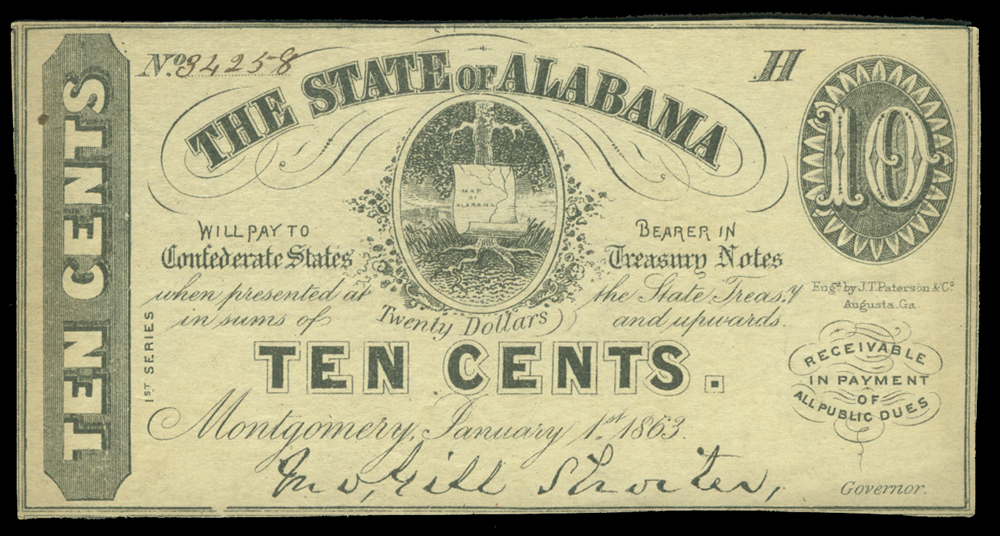 No 34258
H
THE STATE OF ALABAMA
10
TEN CENTS
MAP OF ALABAMA
WILL PAY TO BEARER IN
Confederate States Treasury Notes
when presented at the State Treas.y
in sums of Twenty Dollars and upwards.
Engd. by J.T. Paterson & Co.
Augusta, Ga.
1ST SERIES
TEN CENTS.
RECEIVABLE
IN PAYMENT
OF
ALL PUBLIC DUES
Montgomery, January 1st 1863.
Jno, Gill Shorter,
Governor.